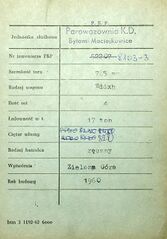 P.K.P.
Jednostka służbowa Parowozownia K.D.
Bytom Maciejkowice
Nr inwentarza PKP 8103-3
Szerokość toru 785 m
Rodzaj wagonu Wddxh
Ilość osi 4
Ładowność w t. 17 ton
Ciężar własny
Rodzaj hamulca ręczny
Wytwórnia Zielona Góra
Rok budowy 1960